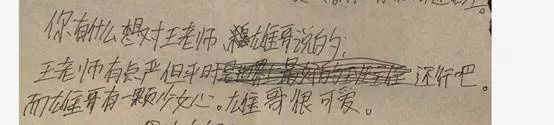 你有什么想对王老师、雄哥说的:
王老师有点严但平时还行吧。
而雄哥有一颗少女心。雄哥很可爱。